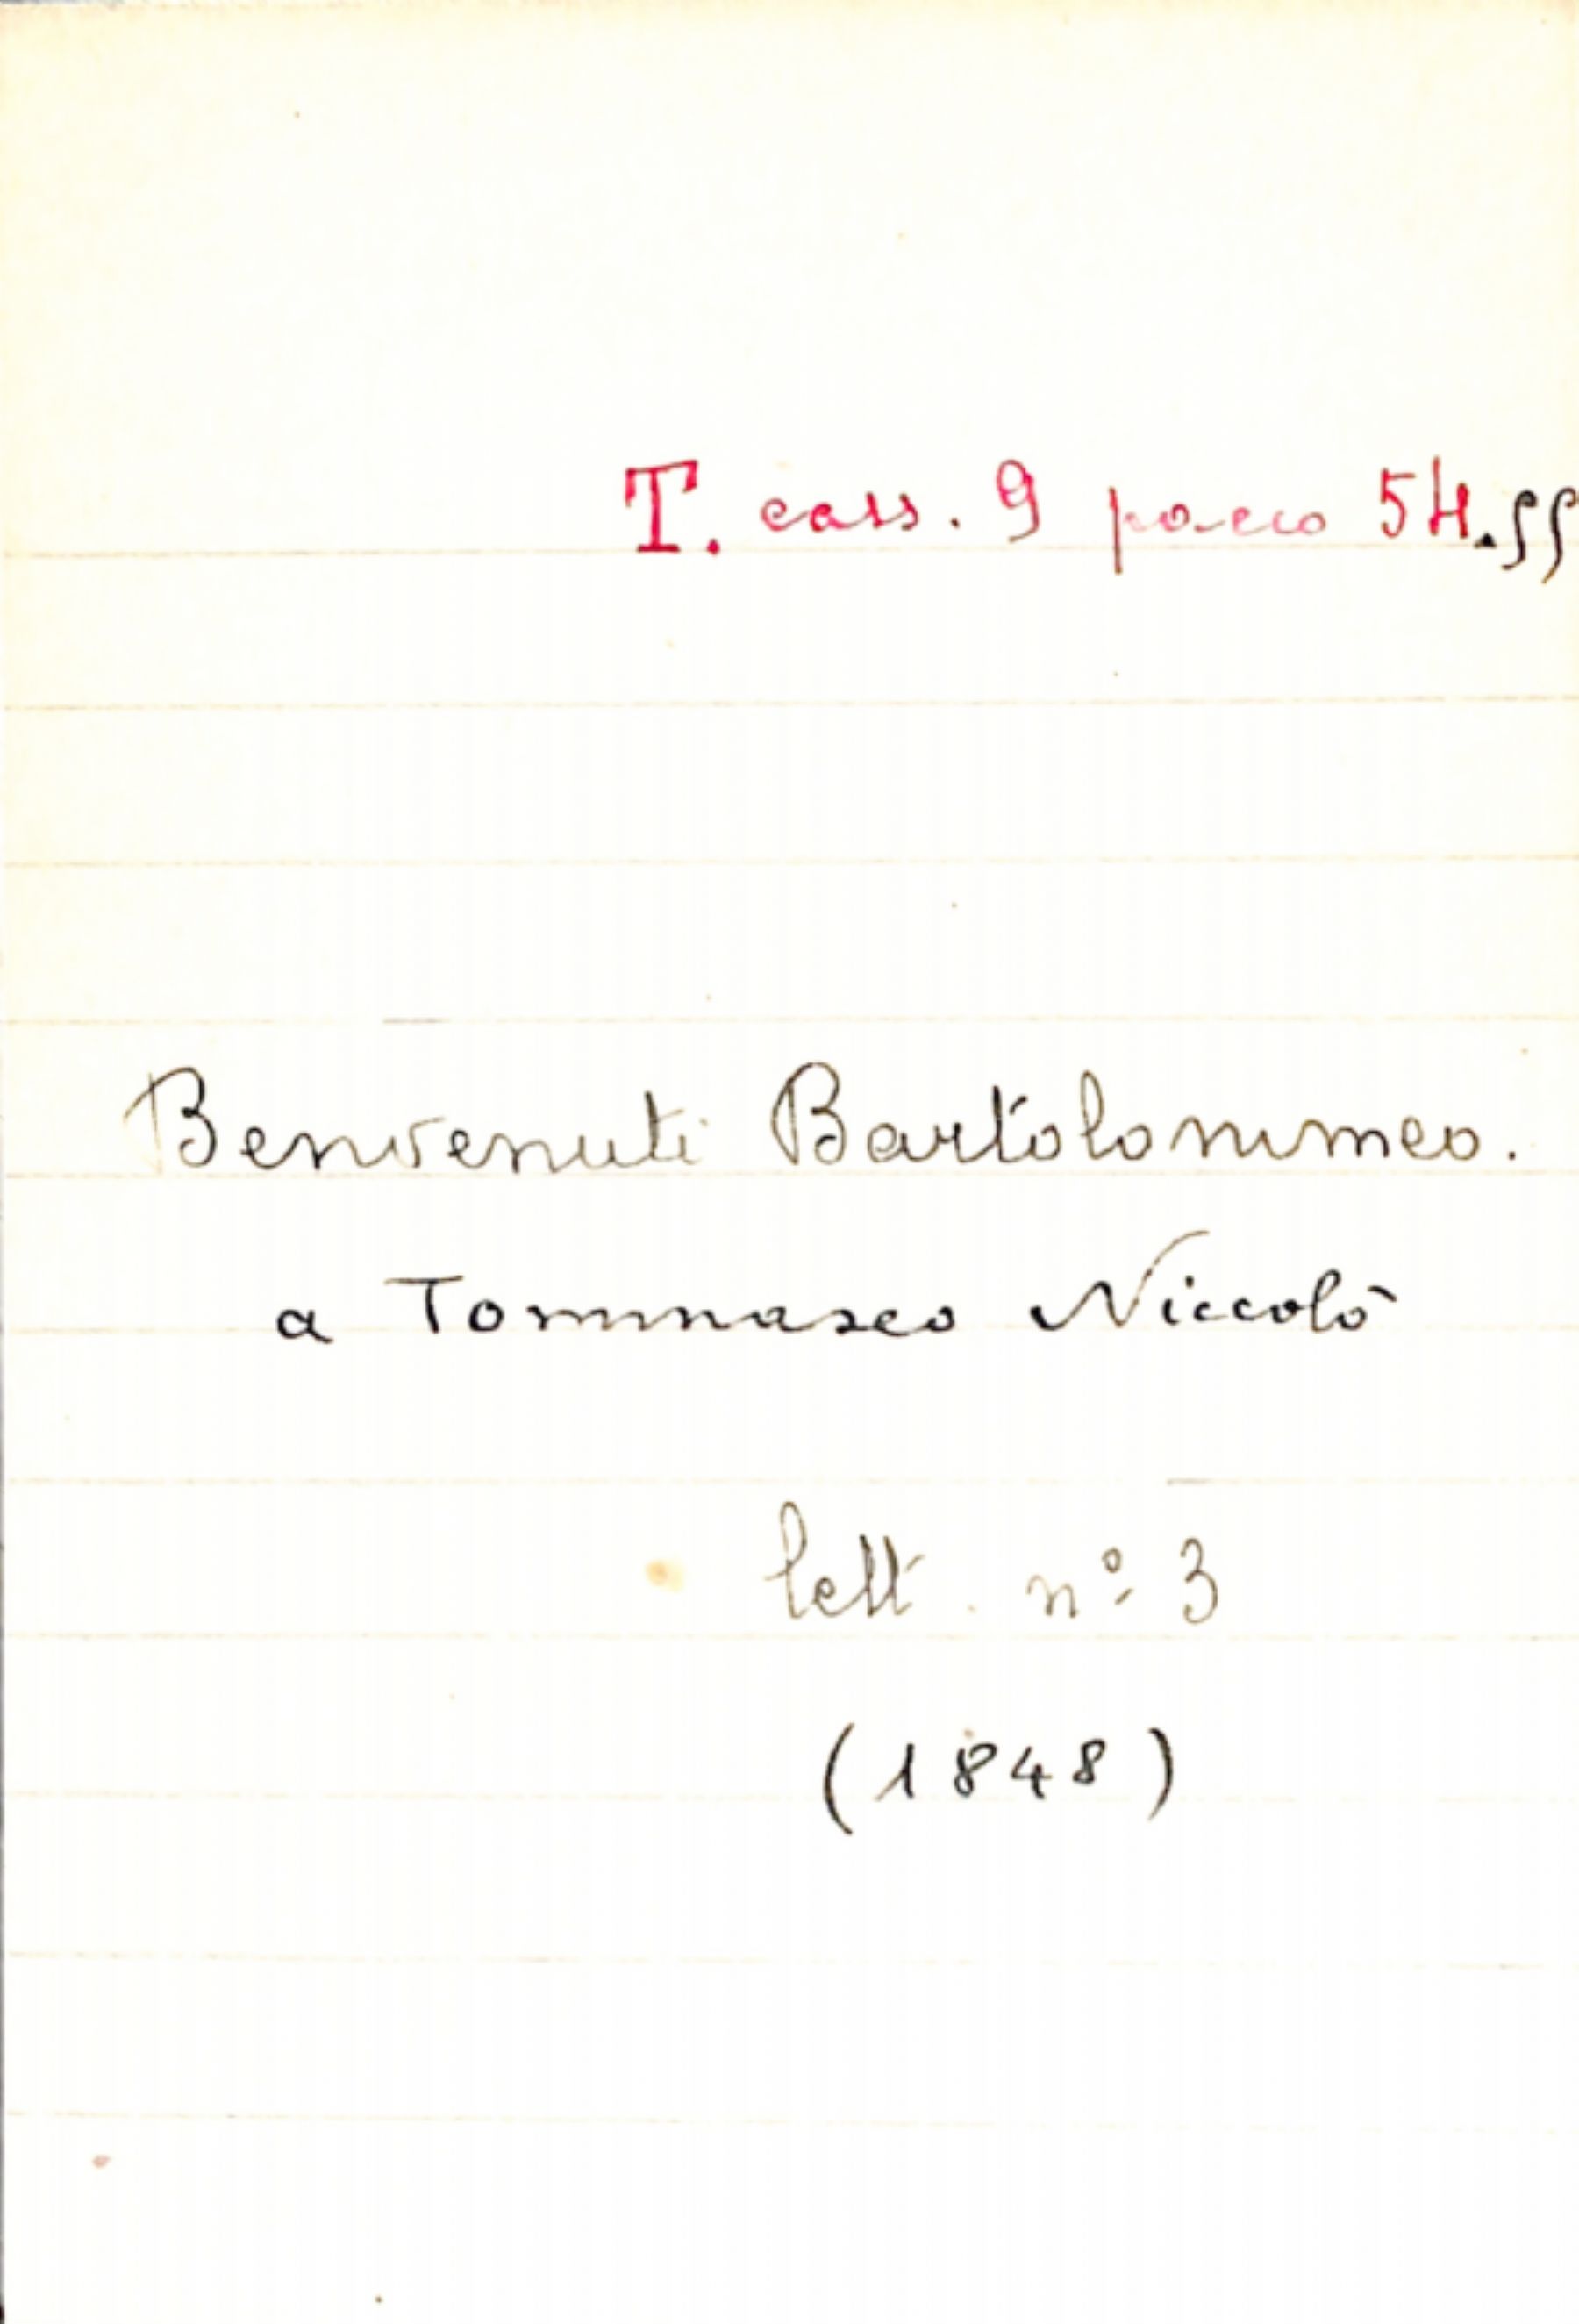 T. cass. 9 pacco 54.
Benvenuti Bartolommeo.
a Tommaseo Niccolò
lett. nº 3
(1848)